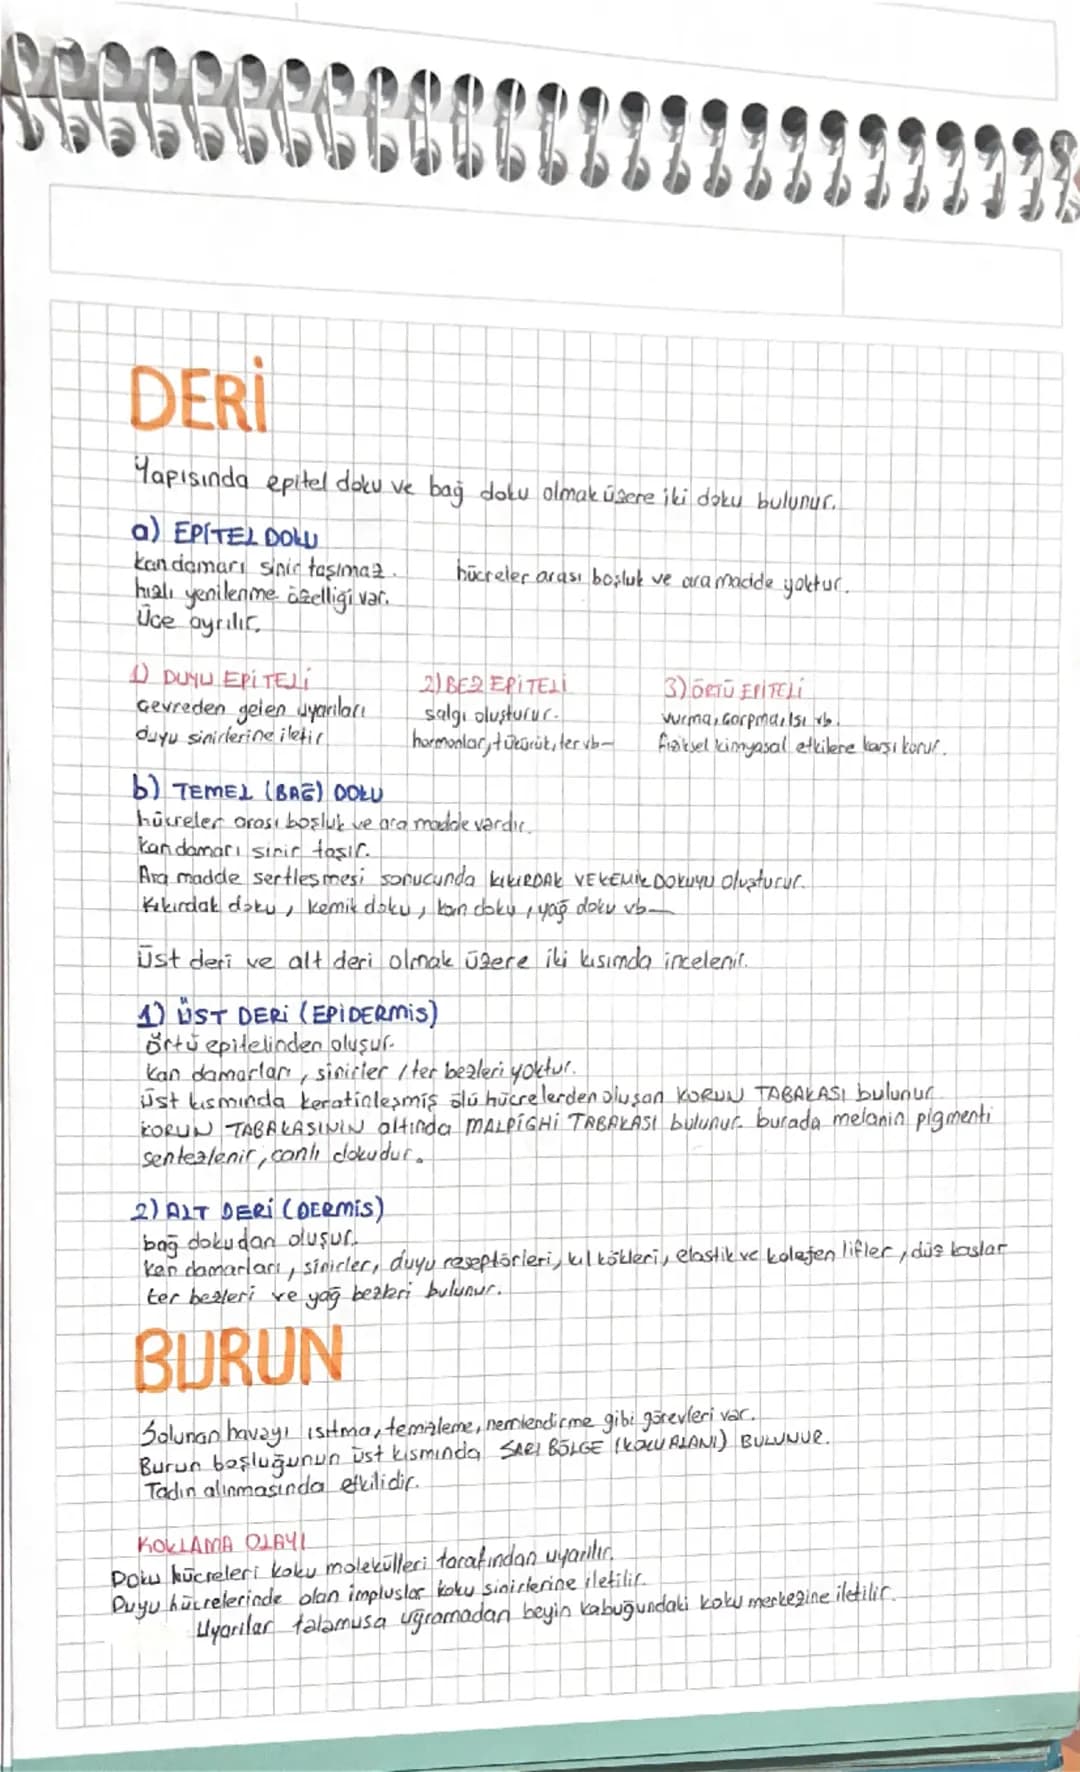 DERİ
Yapısında epitel doku ve bağ doku olmak üzere iki doku bulunur.
a) EPİTEL DOKU
kan damarı sinir taşımaz. hücreler arası boşluk ve ara madde yoktur.
hızlı yenilenme özelliği var.
Üce ayrılır.
1) DUYU EPİTELİ 2) BEZ EPİTELİ 3) ÖRTÜ EPİTELİ
çevreden gelen uyarıları salgı oluşturur. vurma, çarpma, ısı vb.
duyu sinirlerine iletir hormonlar, tükürük, ter vb- fiziksel kimyasal etkilere karşı korur.
b) TEMEL (BAĞ) DOKU
hücreler arası boşluk ve ara madde vardır.
kan damarı sinir taşır.
Ara madde sertleşmesi sonucunda KIKIRDAK VE KEMİK DOKUYU oluşturur.
Kıkırdak doku, kemik doku, kan doku, yağ doku vb-
Üst deri ve alt deri olmak üzere iki kısımda incelenir.
1) ÜST DERİ (EPİDERMİS)
örtü epitelinden oluşur.
kan damarları, sinirler, ter bezleri yoktur.
üst kısmında keratinleşmiş ölü hücrelerden oluşan KORUN TABAKASI bulunur
KORUN TABAKASININ altında MALPİGHİ TABAKASI bulunur. burada melanin pigmenti
sentezlenir, canlı dokudur.
2) ALT DERİ (DERMİS)
bağ dokudan oluşur.
kan damarları, sinirler, duyu reseptörleri, kıl kökleri, elastik ve kolajen lifler, düz kaslar
ter bezleri ve yağ bezleri bulunur.
BURUN
Solunan havayı ısıtma, temizleme, nemlendirme gibi görevleri var.
Burun boşluğunun üst kısmında SARI BÖLGE (KOKU ALANI) BULUNUR.
Tadın alınmasında etkilidir.
KOKLAMA OLAYI
Doku hücreleri koku molekülleri tarafından uyarılır.
Duyu hücrelerinde olan impluslar koku sinirlerine iletilir.
Uyarılar talamusa uğramadan beyin kabuğundaki koku merkezine iletilir.